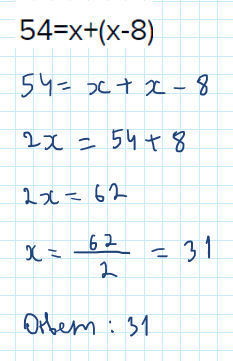 54=x+(x-8)
54 = x + x - 8
2x = 54 + 8
2x = 62
x = 62/2 = 31
Ответ : 31